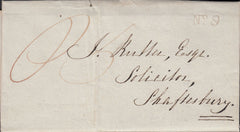 No 2
J. Rutter, Esqr.
Solicitor,
Shaftesbury.